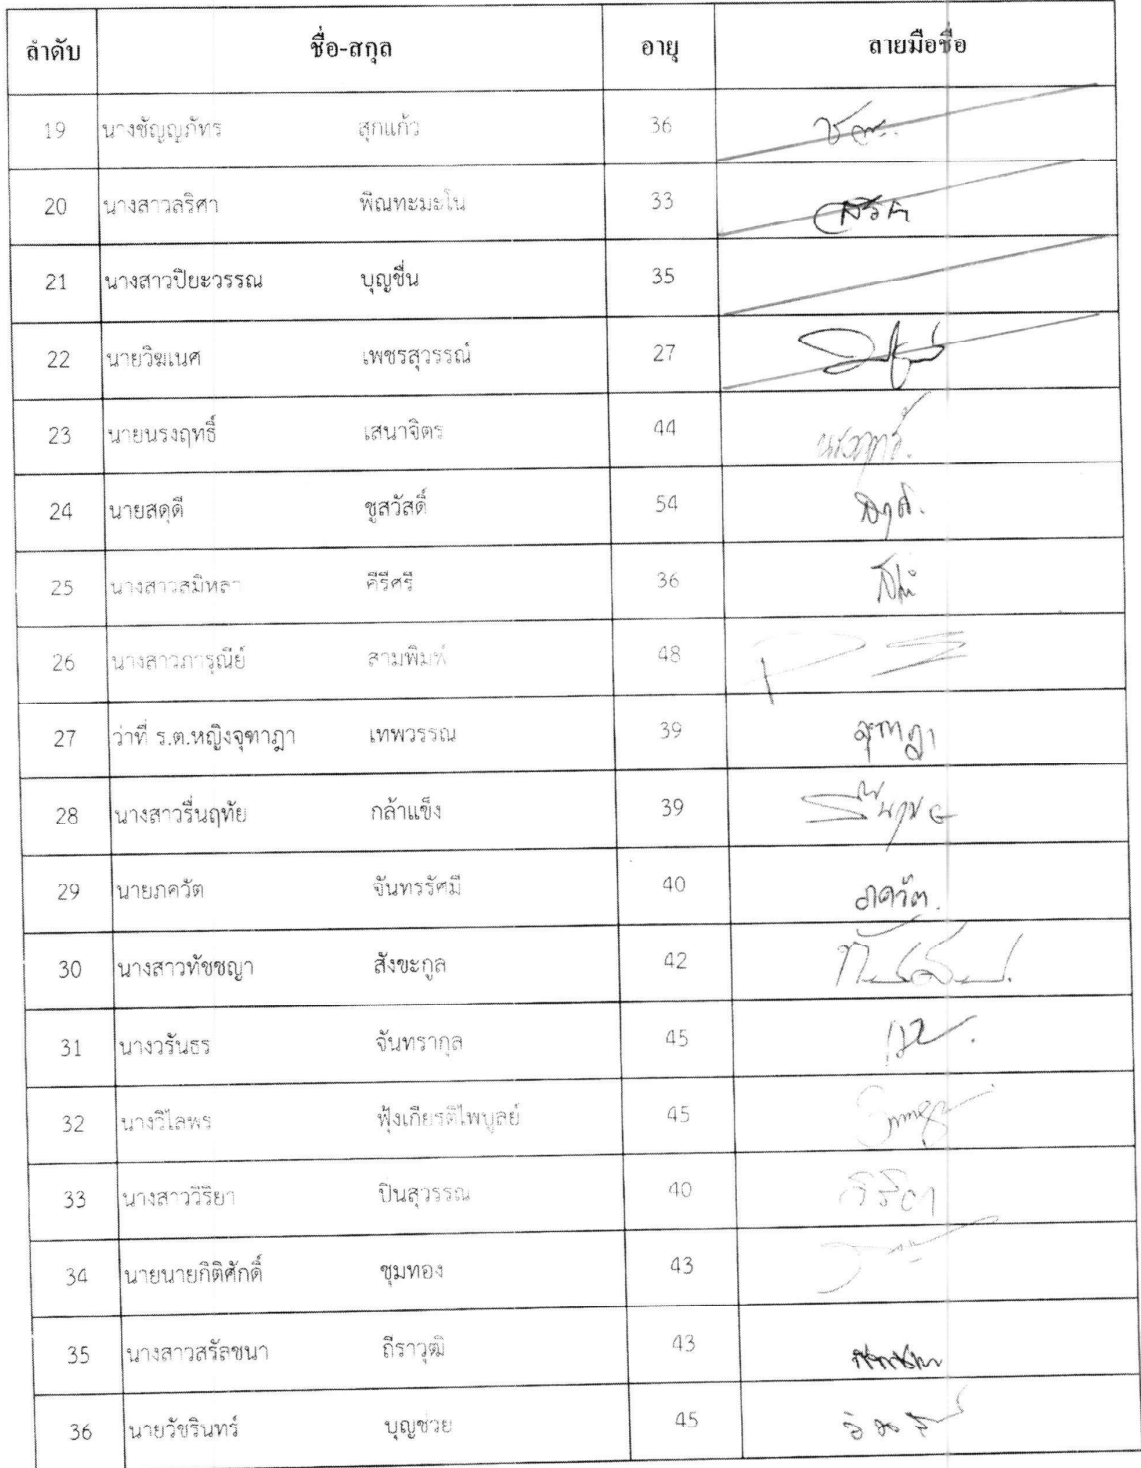 ลำดับ ชื่อ-สกุล อายุ ลายมือชื่อ
19 นางชัญญภัทร สุกแก้ว 36
20 นางสาวลริศา พิณทะมะโน 33 ลริศา
21 นางสาวปิยะวรรณ บุญชื่น 35
22 นายวิฆเนศ เพชรสุวรรณ์ 27
23 นายนรงฤทธิ์ เสนาจิตร 44 นรงฤทธิ์
24 นายสดุดี ชูสวัสดิ์ 54
25 นางสาวสมิหลา คีรีศรี 36
26 นางสาวภารุณีย์ สามพิมพ์ 48
27 ว่าที่ ร.ต.หญิงจุฑาฎา เทพวรรณ 39 จุฑาฎา
28 นางสาวรื่นฤทัย กล้าแข็ง 39
29 นายภควัต จันทรรัศมี 40 ภควัต.
30 นางสาวทัชชญา สังขะกูล 42
31 นางวรันธร จันทรากุล 45
32 นางวิไลพร ฟุ้งเกียรติไพบูลย์ 45
33 นางสาววิริยา ปินสุวรรณ 40 วิริยา
34 นายนายกิติศักดิ์ ชุมทอง 43
35 นางสาวสรัลชนา ถีราวุฒิ 43
36 นายวัชรินทร์ บุญช่วย 45